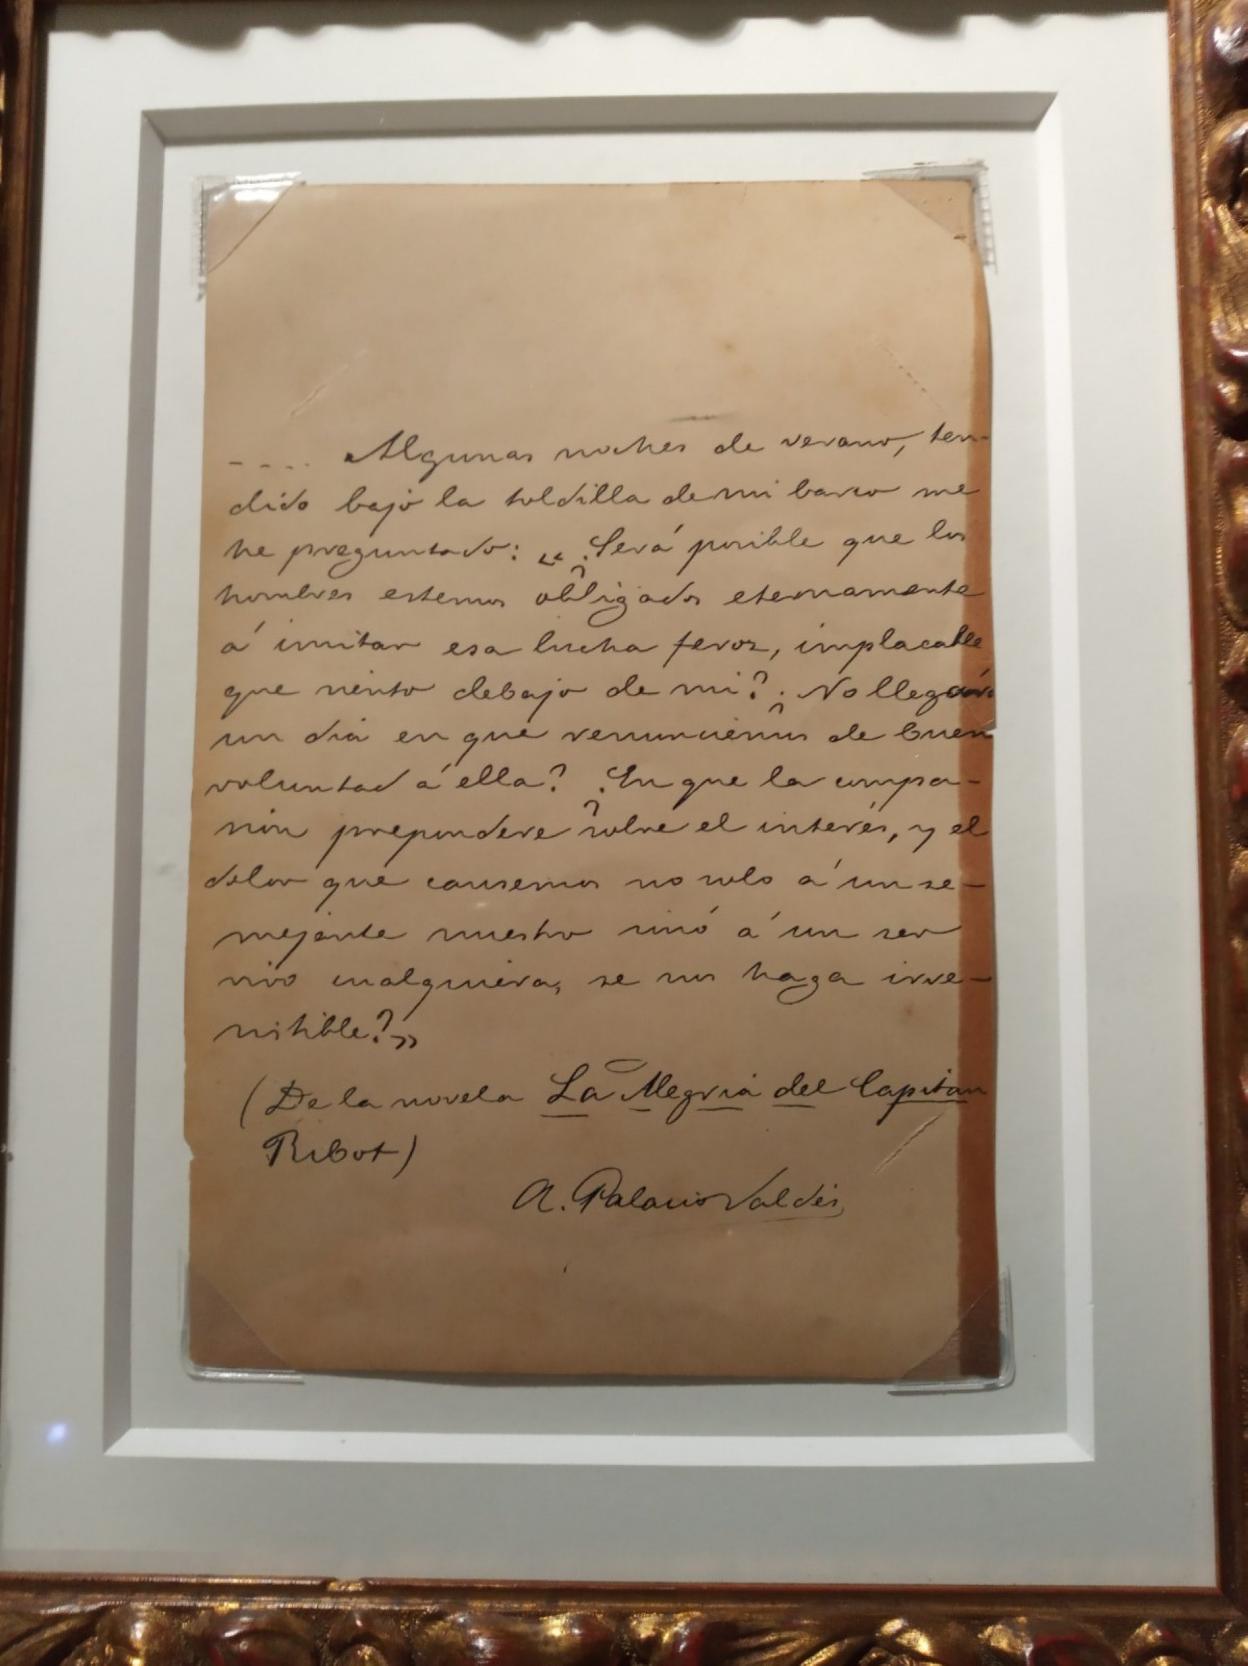 .... Algunas noches de verano, ten-
dido bajo la toldilla de mi barco me
he preguntado: "¿Será posible que los
hombres estemos obligados eternamente
á imitar esa lucha feroz, implacable
que siento debajo de mi? ¿No llegará
un dia en que renunciemos de buena
voluntad á ella? ¿En que la compa-
sión prepondere sobre el interés, y el
dolor que causemos no solo á un se-
mejante nuestro sinó á un ser
vivo cualquiera, se nos haga irre-
sistible?"
(De la novela La Alegria del Capitan
Ribot)
A. Palacio Valdés